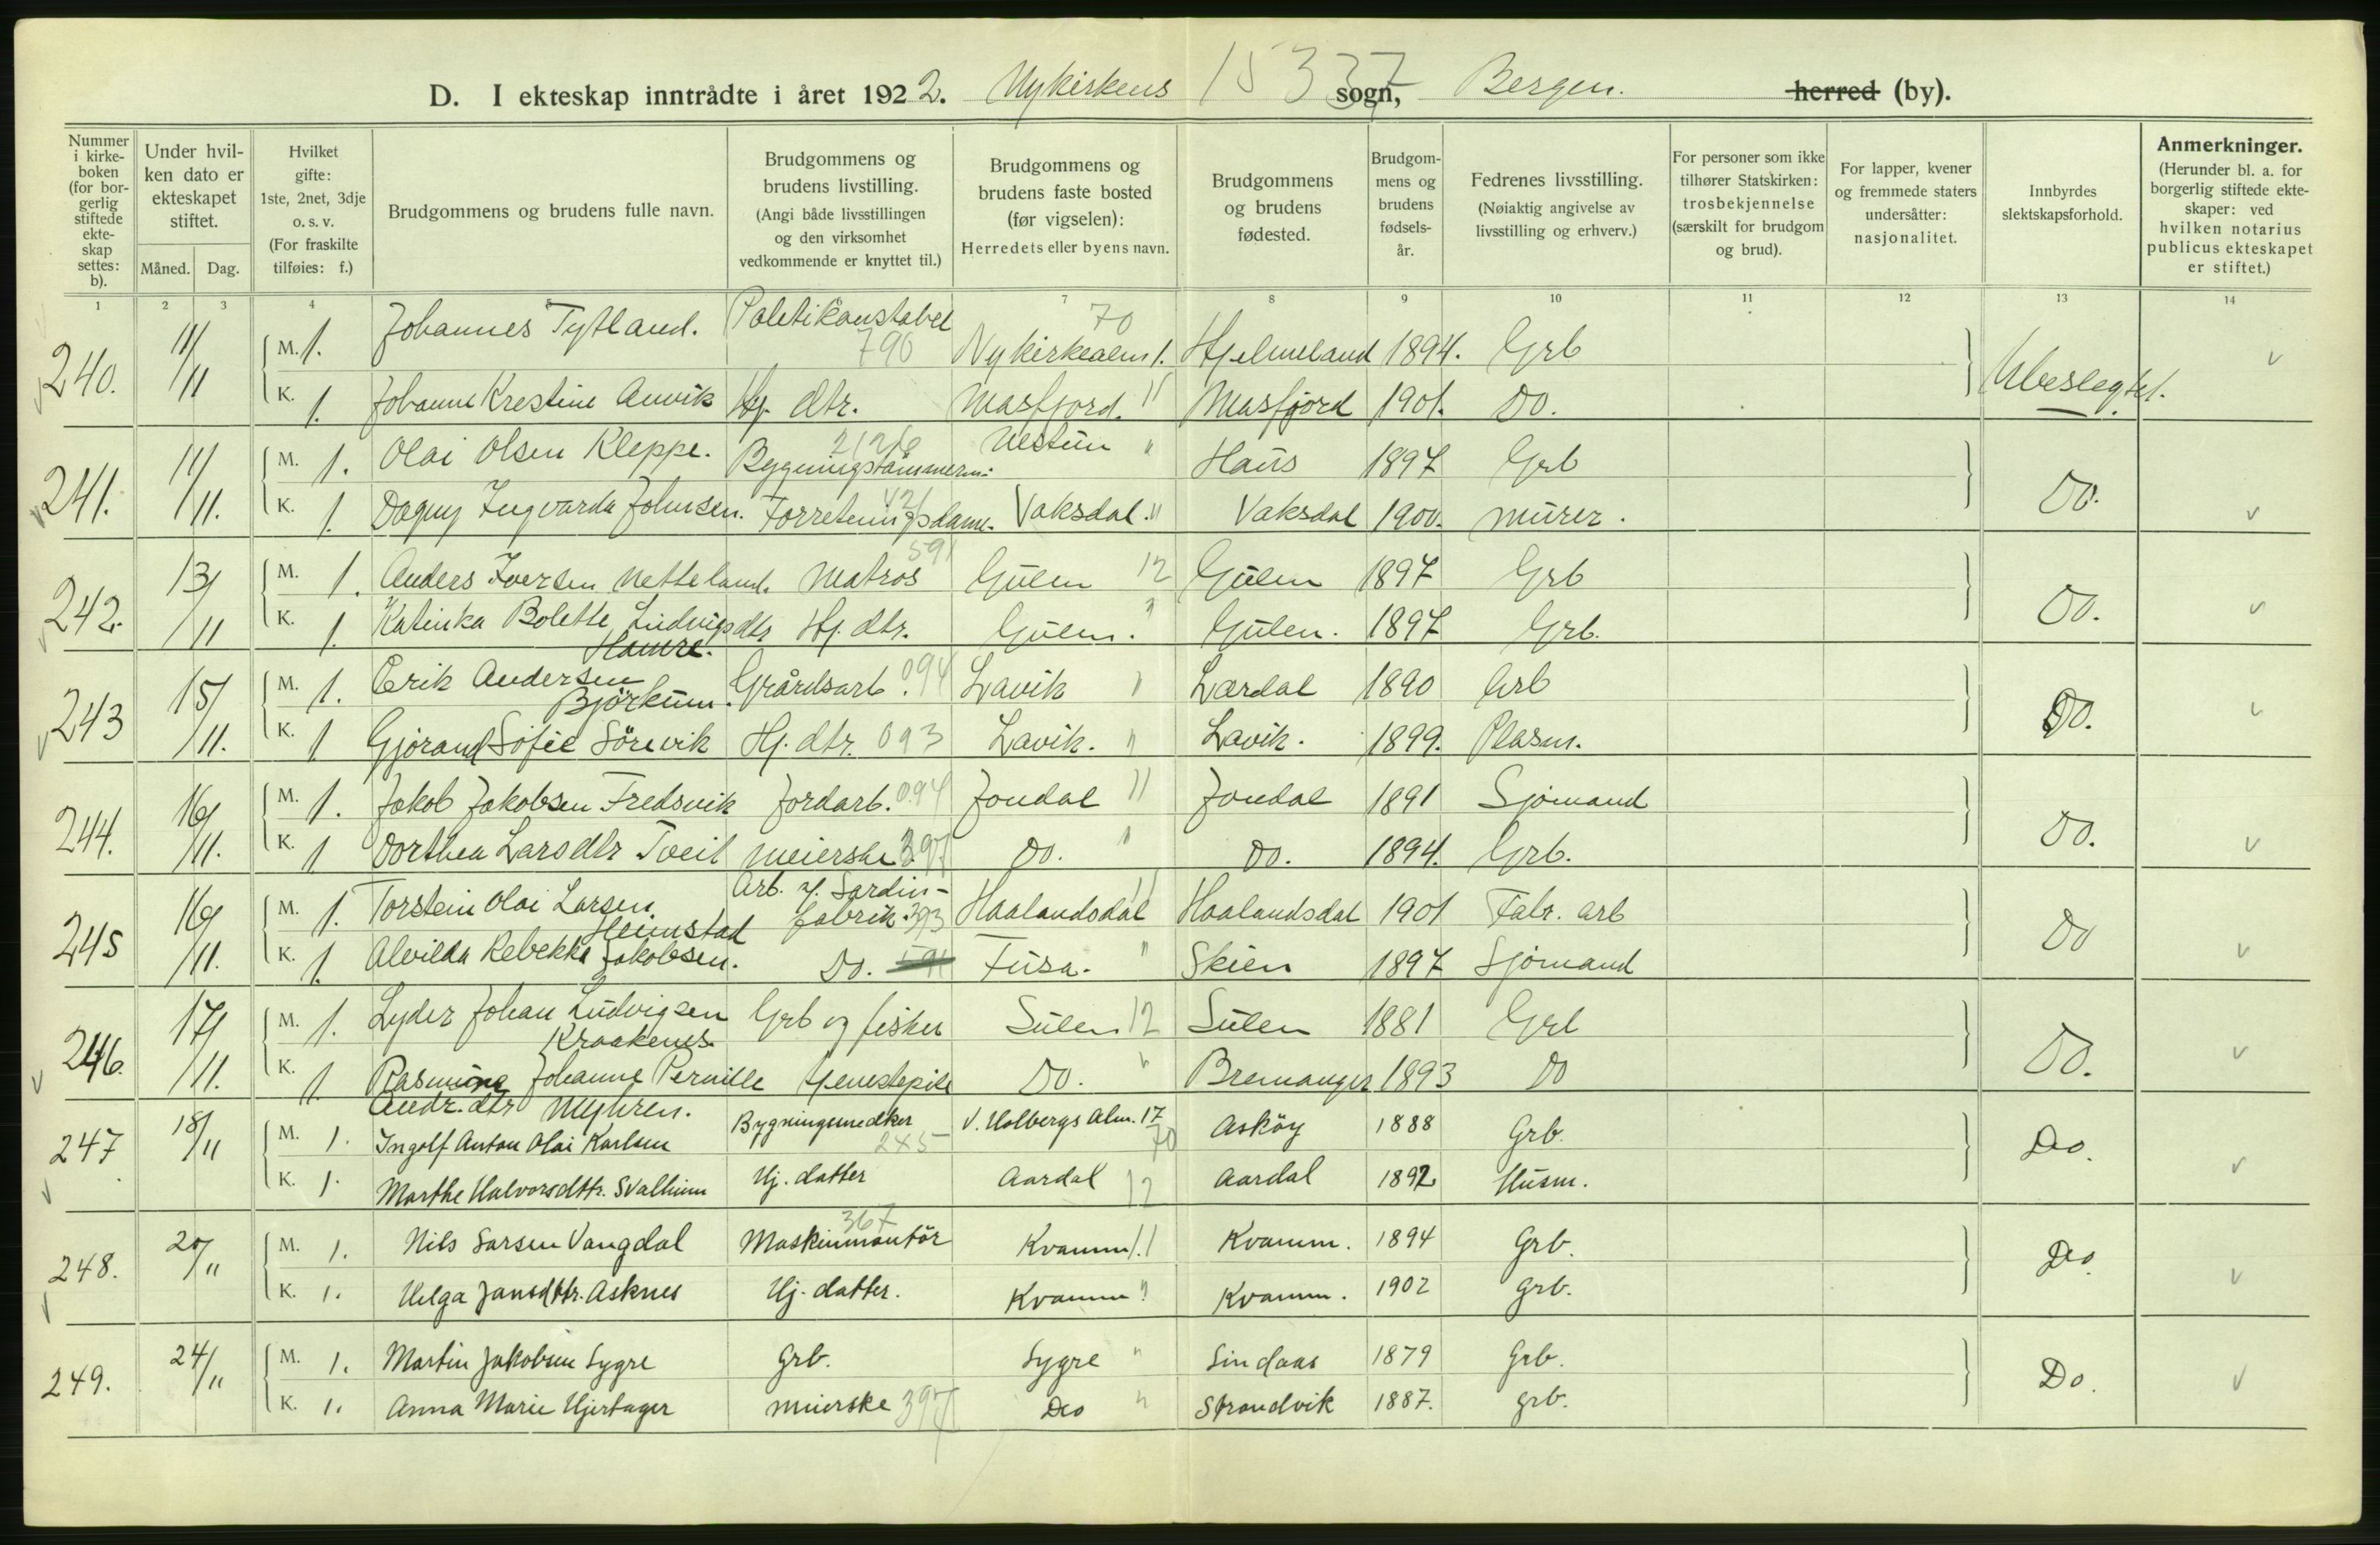 D. I ekteskap inntrådte i året 1922. Nykirkens 15337 sogn, Bergen. herred (by).
Nummer i kirke-boken (for bor-gerlig stiftede ekte-skap settes: b).
Under hvil-ken dato er ekteskapet stiftet.
Måned. Dag.
Hvilket gifte: 1ste, 2net, 3dje o. s. v. (For fraskilte tilføies: f.)
Brudgommens og brudens fulle navn.
Brudgommens og brudens livstilling. (Angi både livsstillingen og den virksomhet vedkommende er knyttet til.)
Brudgommens og brudens faste bosted (før vigselen): Herredets eller byens navn.
Brudgommens og brudens fødested.
Brudgom-mens og brudens fødsels-år.
Fedrenes livsstilling. (Nøiaktig angivelse av livsstilling og erhverv.)
For personer som ikke tilhører Statskirken: trosbekjennelse (særskilt for brudgom og brud).
For lapper, kvener og fremmede staters undersåtter: nasjonalitet.
Innbyrdes slektskapsforhold.
Anmerkninger. (Herunder bl. a. for borgerlig stiftede ekte-skaper: ved hvilken notarius publicus ekteskapet er stiftet.)
1 2 3 4 5 7 8 9 10 11 12 13 14
240. 11/11 M. 1. Johannes Tytland. Politikonstabel 790 Nykirkealm 1. 70 Hjelmeland 1894. Grb Ubeslegtet.
K. 1. Johanne Krestine Anvik Hj. dtr. Masfjord. " Masfjord 1901. Do.
241. 11/11. M. 1. Olai Olsen Kleppe. Bygningstømmerm. Nestun " Haus 1897 Grb Do.
K. 1. Dagny Ingvarda Johnsen. Forretningsdame. 421 Vaksdal. " Vaksdal 1900. Murer.
242. 13/11 M. 1. Anders Iversen Netteland. Matros 591 Gulen 12 Gulen 1897 Grb Do.
K. 1. Katinka Bolette Ludvigsdtr Hamre. Hj. dtr. Gulen. " Gulen. 1897 Grb.
243 15/11. M. 1. Erik Andersen Björkum. Grårdsarb. 094 Lavik " Lærdal 1890 Grb Do.
K. 1 Gjørand Sofie Sörevik Hj. dtr. 093 Lavik. " Lavik. 1899. Plasm.
244. 16/11. M. 1. Jakob Jakobsen Fredsvik Jordarb. 094 Jondal 11 Jondal 1891 Sjømand Do.
K. 1 Dorthea Larsdtr Tveit Meierske 397 Do. " Do. 1894. Grb.
245 16/11. M. 1. Torstein Olai Larsen Heimstad Arb. v. Sardin-fabrik. 393 Haalandsdal 11 Haalandsdal 1901 Fabr. arb Do
K. 1. Alvilda Rebekka Jakobsen. Do. Fusa. " Skien 1897 Sjømand
246. 17/11. M. 1. Lyder Johan Ludvigsen Kraakenes. Grb og fisker Sulen 12 Sulen 1881 Grb Do.
K. 1 Rasmine Johanne Pernille Andr. dtr Myhren. Tjenestepike Do. " Bremanger 1893 Do
247 18/11 M. 1. Ingolf Anton Olai Karlsen Bygningsnedker 245 V. Holbergs Alm. 17 70 Asköy 1888 Grb. Do.
K. 1. Marthe Halvorsdttr. Svalheim Hj. datter Aardal 12 Aardal 1892 Husm.
248. 20/11 M. 1. Nils Larsen Vangdal Maskinmontör 367 Kvamm 11 Kvamm. 1894 Grb. Do.
K. 1. Helga Jansdttr. Asknes Hj. datter. Kvamm " Kvamm. 1902 Grb.
249. 24/11 M. 1. Martin Jakobsen Sygre Grb. Sygre " Lindaas 1879 Grb. Do.
K. 1. Anna Marie Hjertager Meierske 397 Do " Strandvik 1887. Grb.